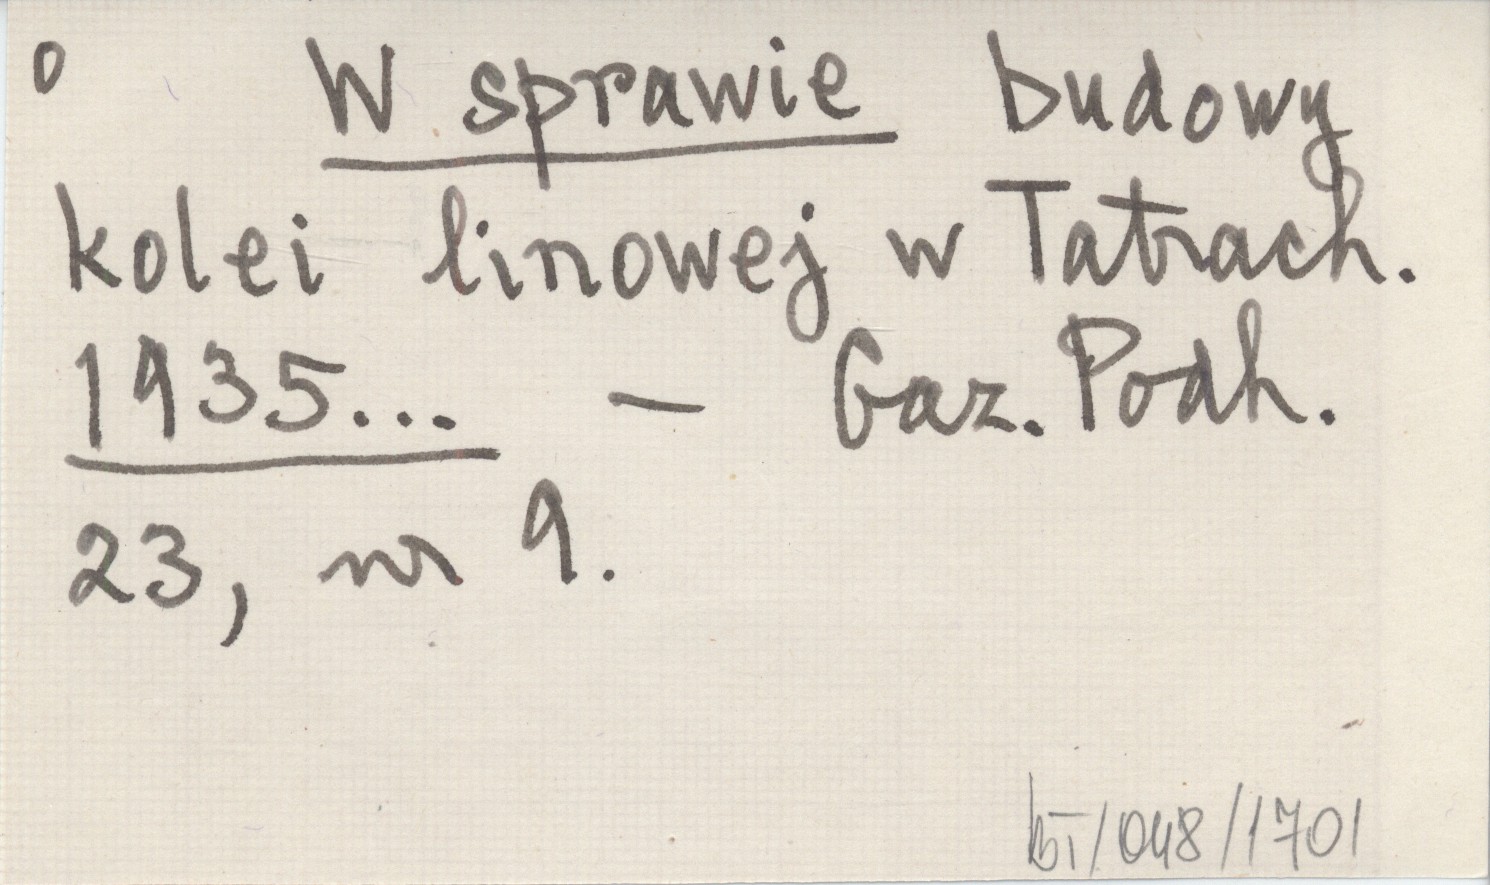 o W sprawie budowy
kolei linowej w Tatrach.
1935... — Gaz. Podh.
23, nr 9.
BT/048/1701